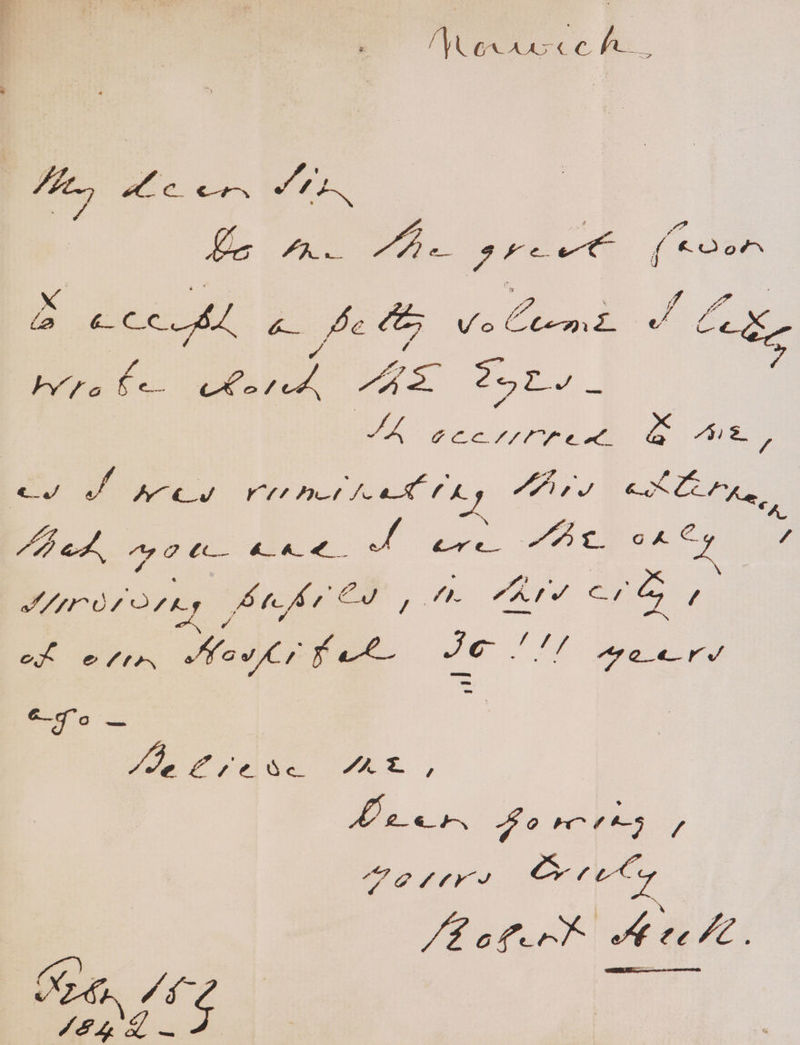 Norwich.
My dear Sir
Do me the great favor
to accept a petty volume I lately
wrote about the Eyes –
It occurred to me,
as I was ruminating this afternoon,
that you and I are the only
surviving pupils, in this city,
of our Hospital 30!!! years
ago –
Believe me,
Dear Gowing,
yours truly
Robert Hull.
1842 –